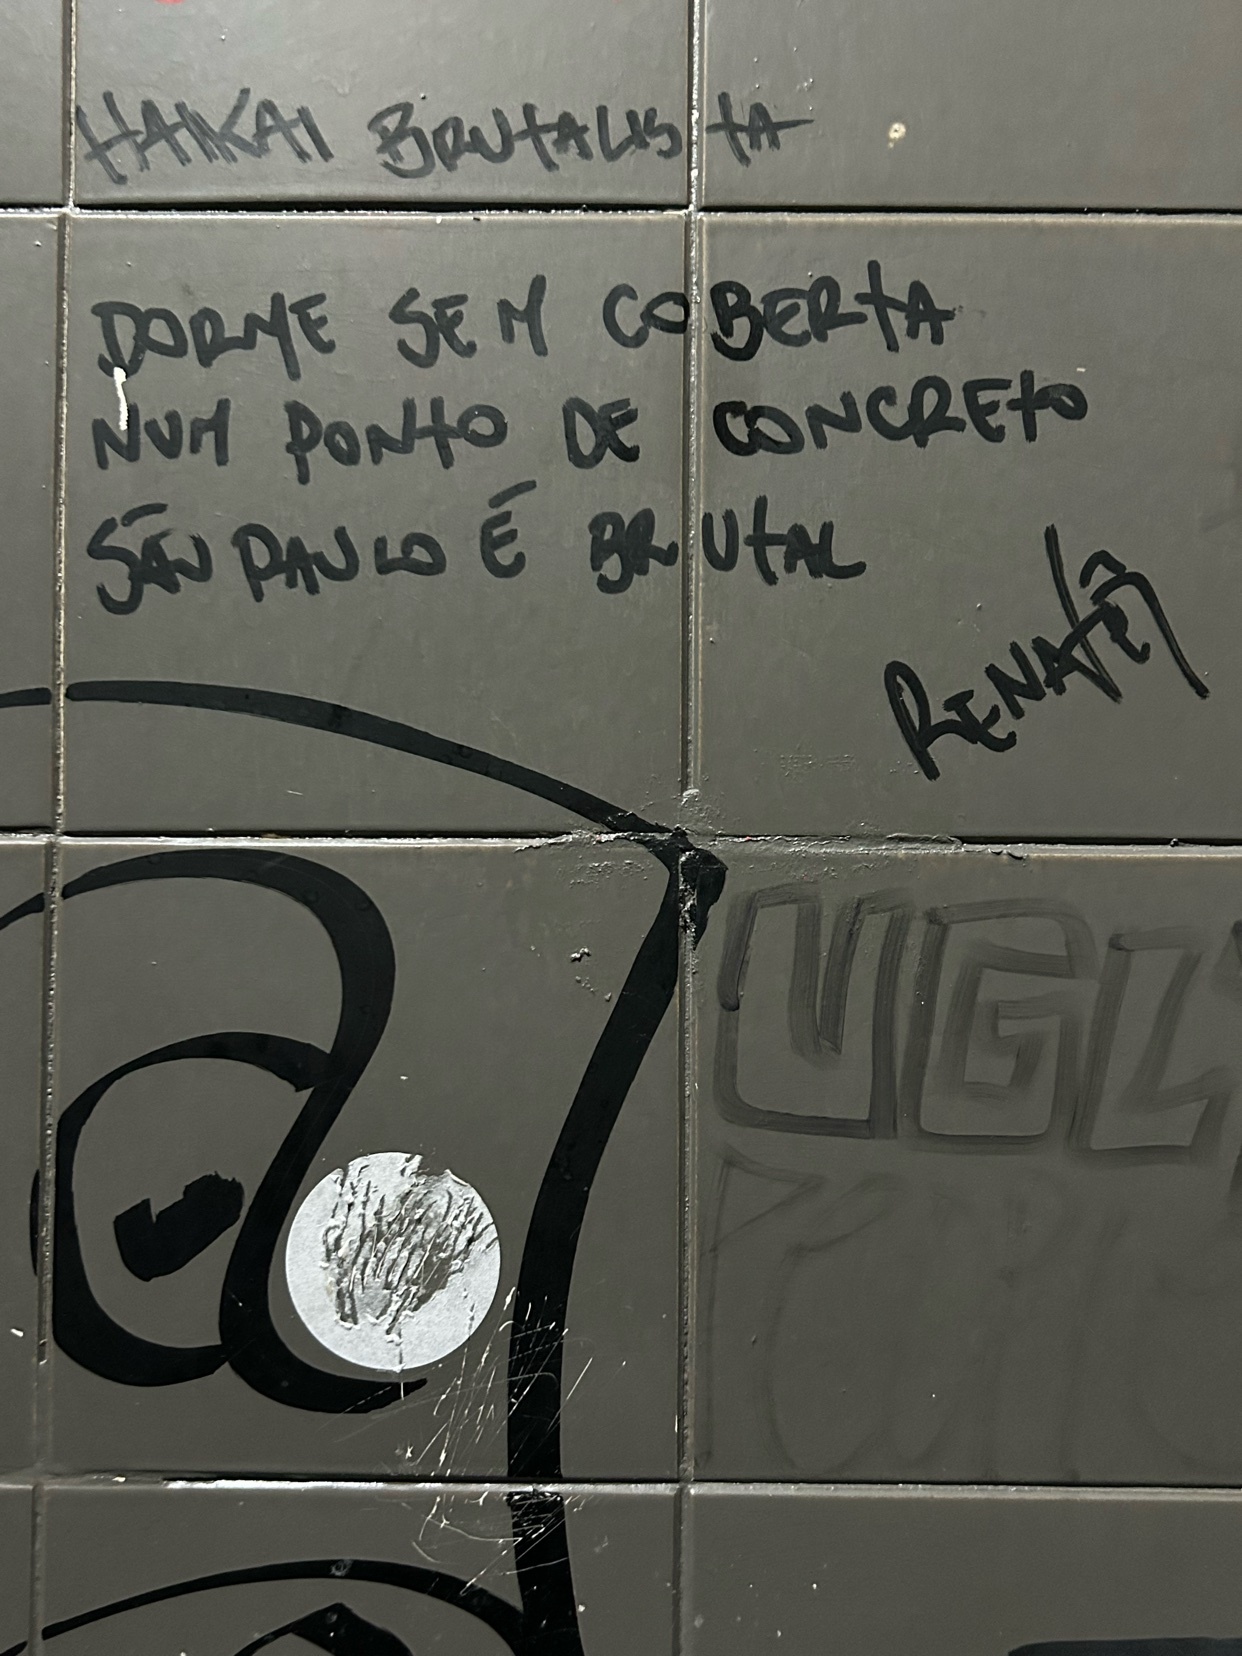 HAIKAI BRUTALISTA
DORME SEM COBERTA
NUM PONTO DE CONCRETO
SÃO PAULO É BRUTAL
UGL